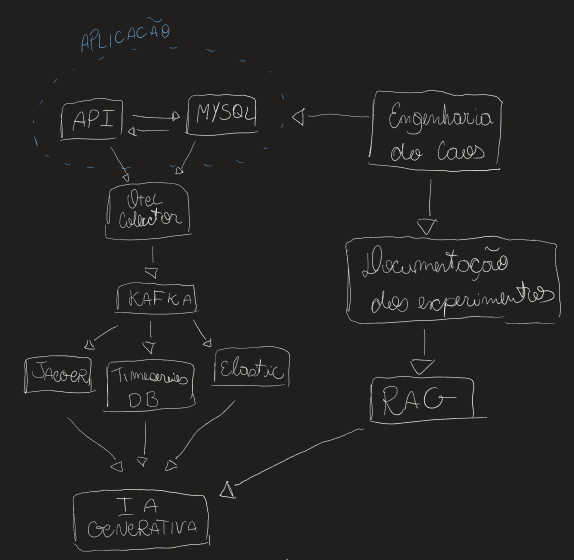 APLICACÃO
API
MYSQL
Engenharia
do Caos
Otel
Colector
Documentação
dos experimentos
KAFKA
JAEGER
Timeseries
DB
Elastic
RAG
IA
GENERATIVA